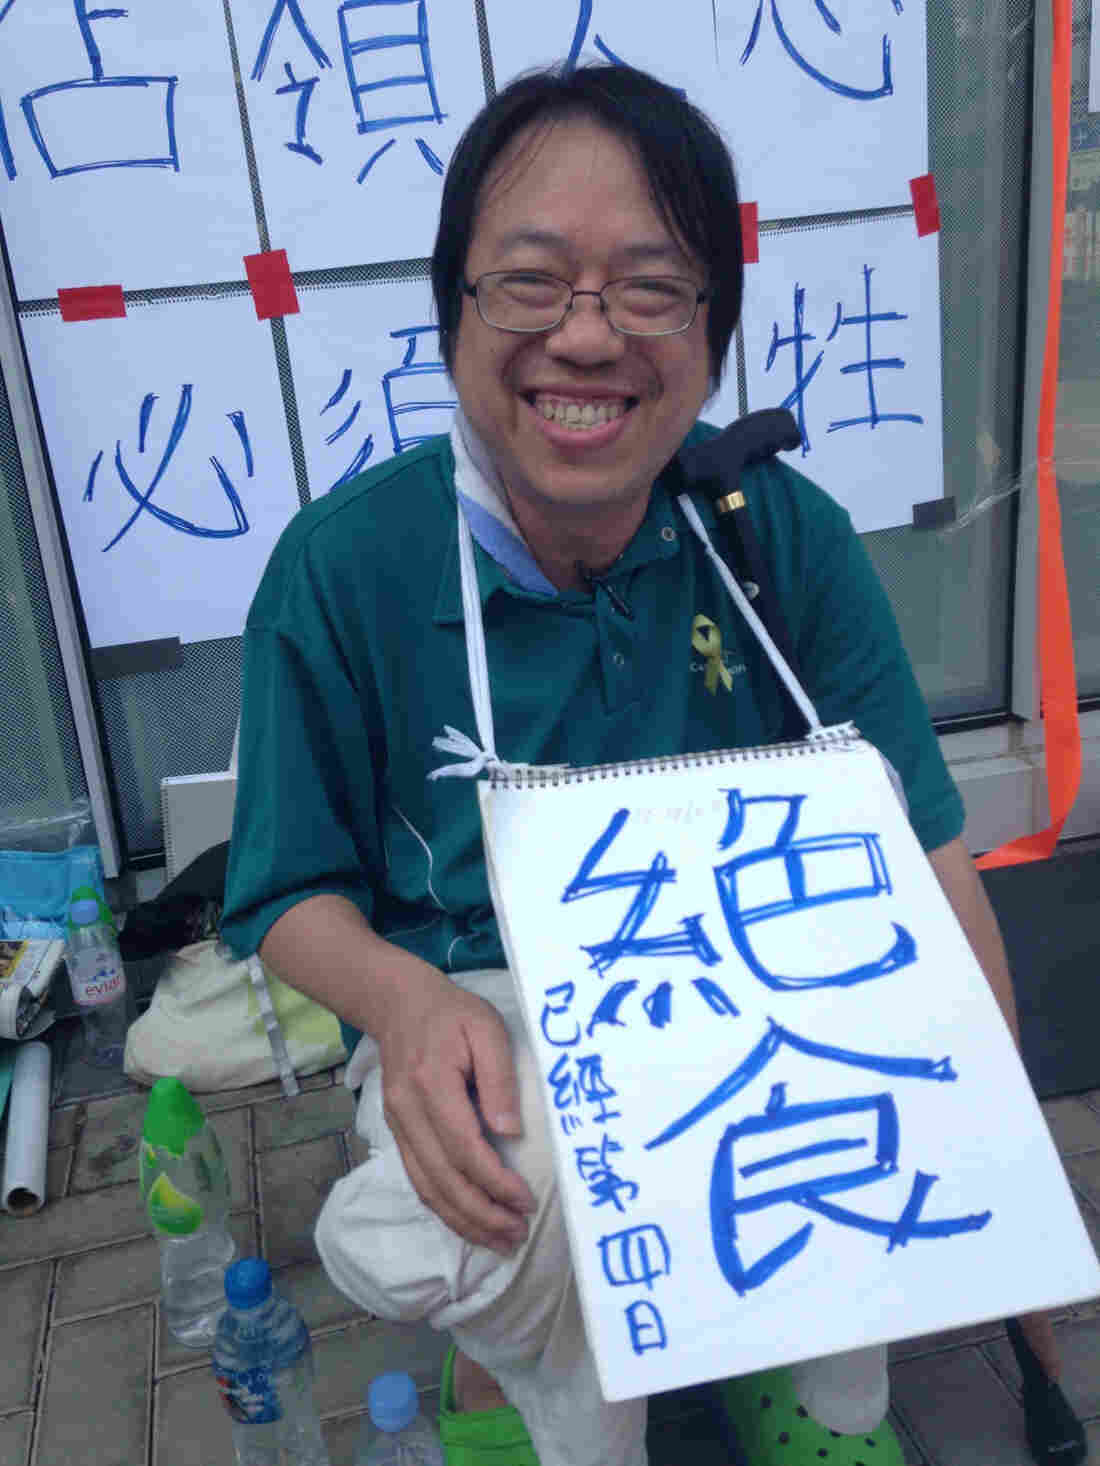 佔領人心
必須 牲
絕食
已經第四日
evian